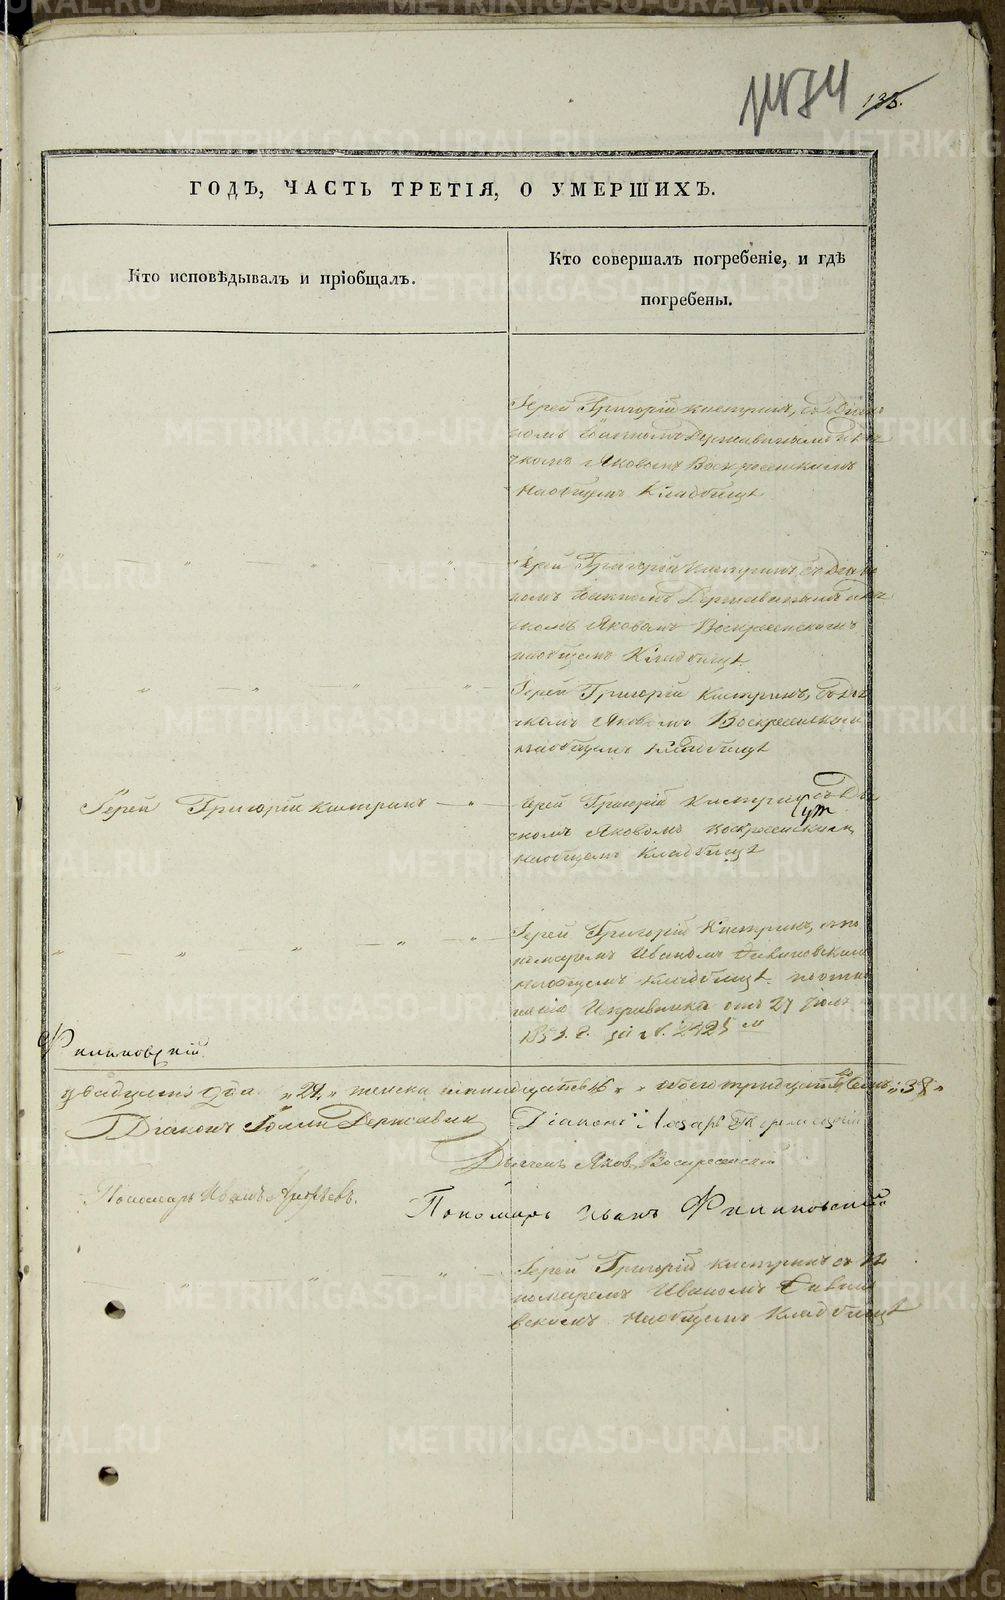 135.
ГОДЪ, ЧАСТЬ ТРЕТІЯ, О УМЕРШИХЪ.
Кто исповѣдывалъ и пріобщалъ.
Кто совершалъ погребеніе, и гдѣ
погребены.
Іерей Григорій Кистринъ, съ Діако
номъ Іоанномъ Державинымъ и Дья
чкомъ Яковомъ Воскресенскимъ
на общемъ кладбищѣ
Іерей Григорій Кистринъ, съ Діако
номъ Іоанномъ Державинымъ и Дья
чкомъ Яковомъ Воскресенскимъ
на общемъ кладбищѣ
Іерей Григорій Кистринъ, съ Дья
чкомъ Яковомъ Воскресенскимъ
на общемъ кладбищѣ
Іерей Григорій Кистринъ
Іерей Григорій Кистринъ съ Дья
чкомъ Яковомъ Воскресенскимъ
на общемъ кладбищѣ
Іерей Григорій Кистринъ, съ по
номаремъ Иваномъ
на общемъ кладбищѣ по отно
шенію Исправника отъ 27 Іюля
185 г. за № 2425 м
Филиновскій.
двадцать два „22„ женска шестнадцать 16 „ обоего тридцать восемь „38„
Діаконъ Іоаннъ Державинъ
Діаконъ Лазарь
Дьячекъ Яковъ Воскресенскій
Пономарь Иванъ
Пономарь Иванъ Филиновскій
Іерей Григорій Кистринъ съ по
номаремъ Иваномъ
вскимъ на общемъ кладбищѣ
METRIKI.GASO-URAL.RU